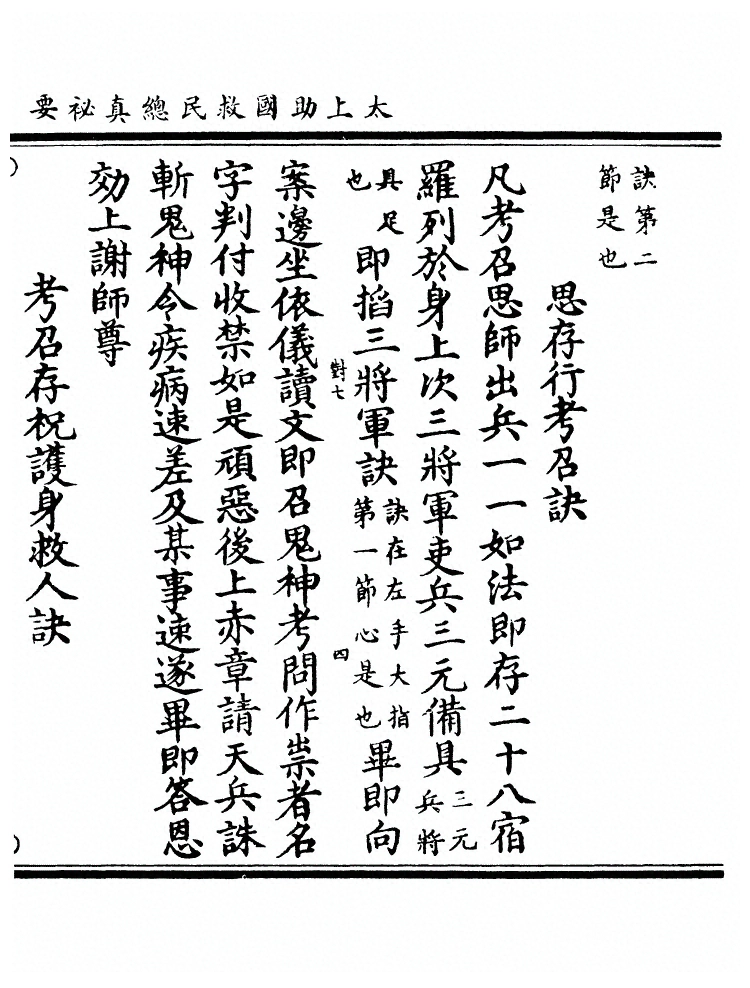 太上助國救民總真祕要
訣第二
節是也
思存行考召訣
凡考召思師出兵一一如法即存二十八宿
羅列於身上次三將軍吏兵三元備具三元兵將
具足也即搯三將軍訣訣在左手大指第一節心是也畢即向
對七
四
案邊坐依儀讀文即召鬼神考問作祟者名
字判付收禁如是頑惡後上赤章請天兵誅
斬鬼神令疾病速差及某事速遂畢即答恩
効上謝師尊
考召存祝護身救人訣